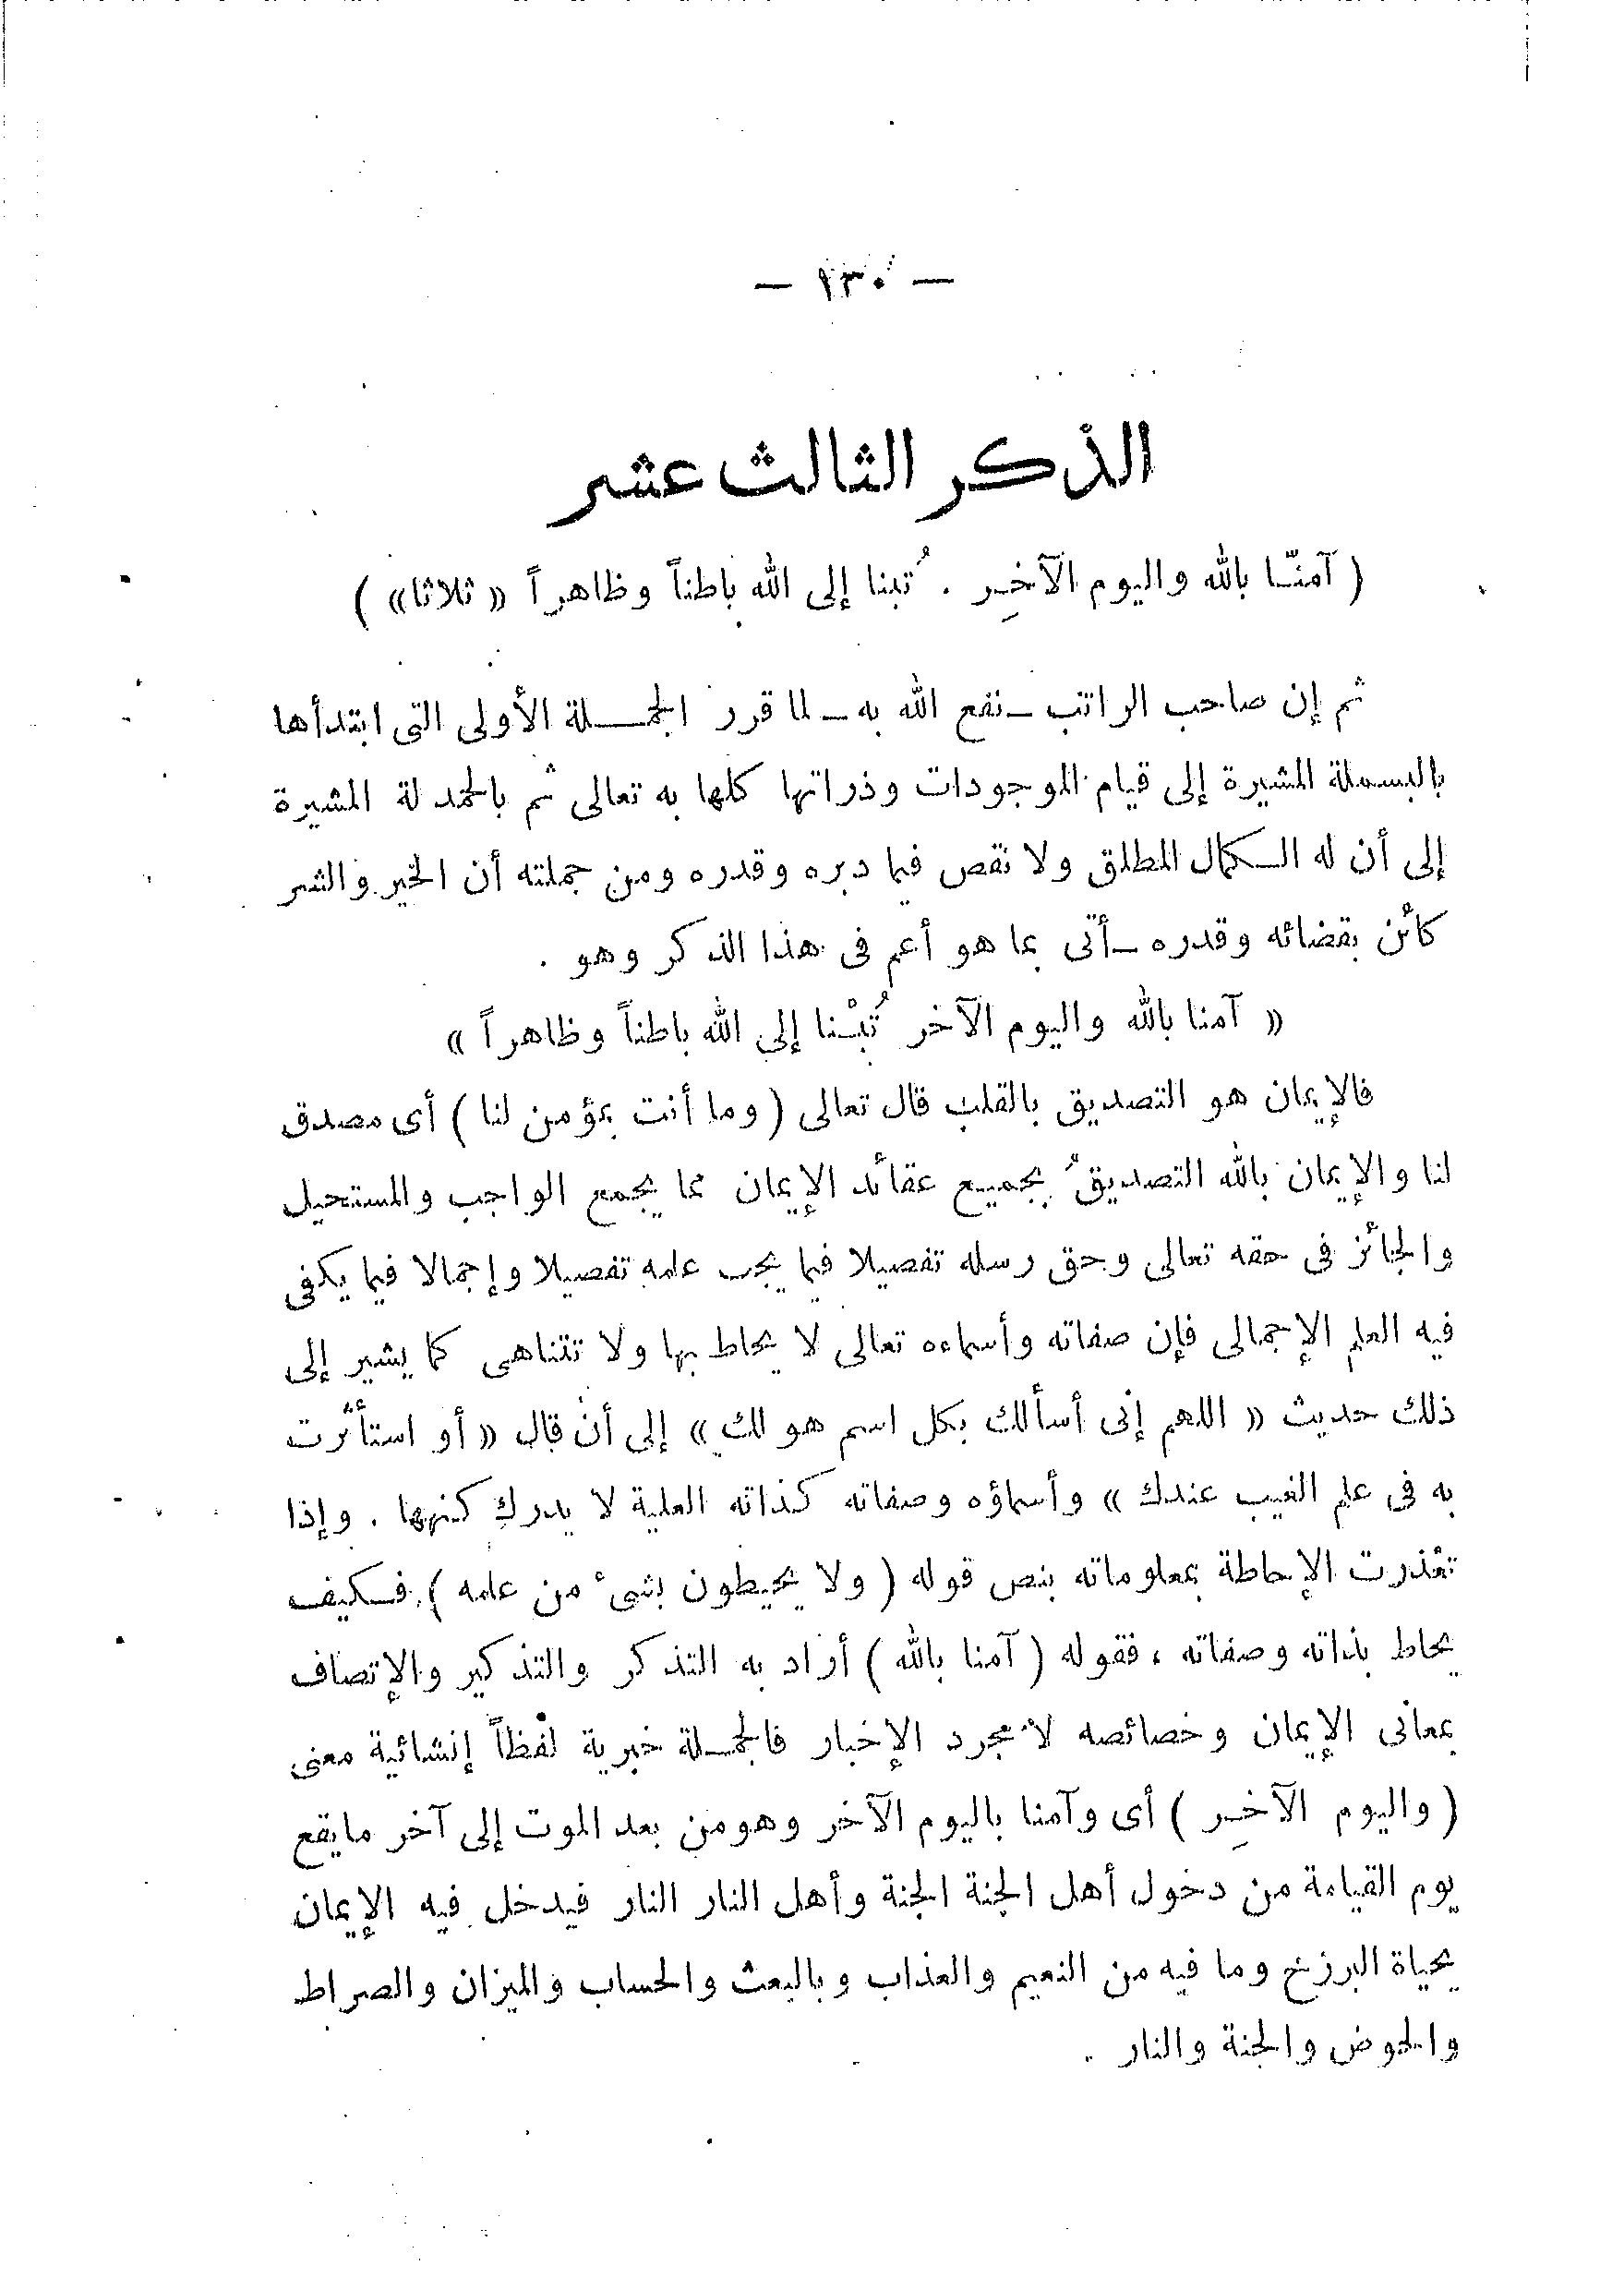 — ١٣٠ —
الذكر الثالث عشر
( آمنّا بالله واليوم الآخِر . تُبنا إلى الله باطناً وظاهراً « ثلاثا» )
ثم إن صاحب الراتب ـ نفع الله به ـ لما قرر الجملة الأولى التى ابتدأها
بالبسملة المشيرة إلى قيام الموجودات وذراتها كلها به تعالى ثم بالحمدلة المشيرة
إلى أن له الكمال المطلق ولا نقص فيما دبره وقدره ومن جملته أن الخير والشر
كائن بقضائه وقدره ـ أتى بما هو أعم فى هذا الذكر وهو .
« آمنا بالله واليوم الآخر تُبْنا إلى الله باطناً وظاهراً »
فالإيمان هو التصديق بالقلب قال تعالى ( وما أنت بمؤمن لنا ) أى مصدق
لنا والإيمان بالله التصديقُ بجميع عقائد الإيمان مما يجمع الواجب والمستحيل
والجائز فى حقه تعالى وحق رسله تفصيلا فيما يجب علمه تفصيلا وإجمالا فيما يكفى
فيه العلم الإجمالى فإن صفاته وأسماءه تعالى لا يحاط بها ولا تتناهى كما يشير إلى
ذلك حديث « اللهم إنى أسألك بكل اسم هو لك » إلى أن قال « أو استأثرت
به فى علم الغيب عندك » وأسماؤه وصفاته كذاته العلية لا يدرك كنهها . وإذا
تعذرت الإحاطة بمعلوماته بنص قوله ( ولا يحيطون بشىء من علمه ) فكيف
يحاط بذاته وصفاته ، فقوله ( آمنا بالله ) أراد به التذكر والتذكير والإتصاف
بمعانى الإيمان وخصائصه لا مجرد الإخبار فالجملة خبرية لفظاً إنشائية معنى
( واليوم الآخِر ) أى وآمنا باليوم الآخر وهو من بعد الموت إلى آخر مايقع
يوم القيامة من دخول أهل الجنة الجنة وأهل النار النار فيدخل فيه الإيمان
بحياة البرزخ وما فيه من النعيم والعذاب وبالبعث والحساب والميزان والصراط
والحوض والجنة والنار .